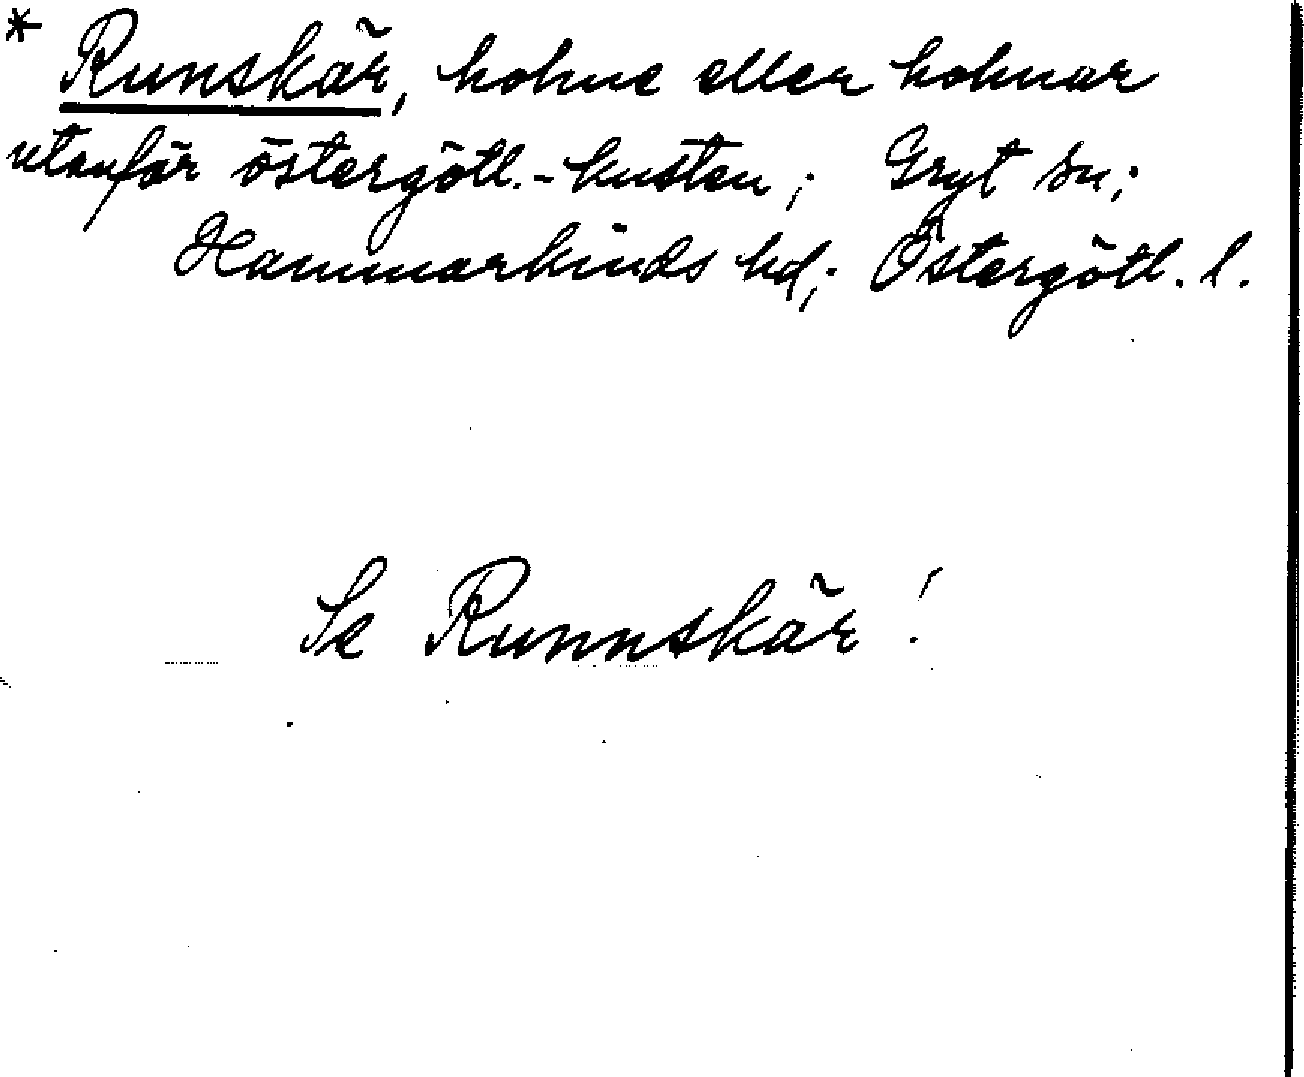 * Runskär, holme eller holmar
utanför östergötl.-kusten; Gryt sn;
Hammarkinds hd; Östergötl. l.
Se Runnskär!